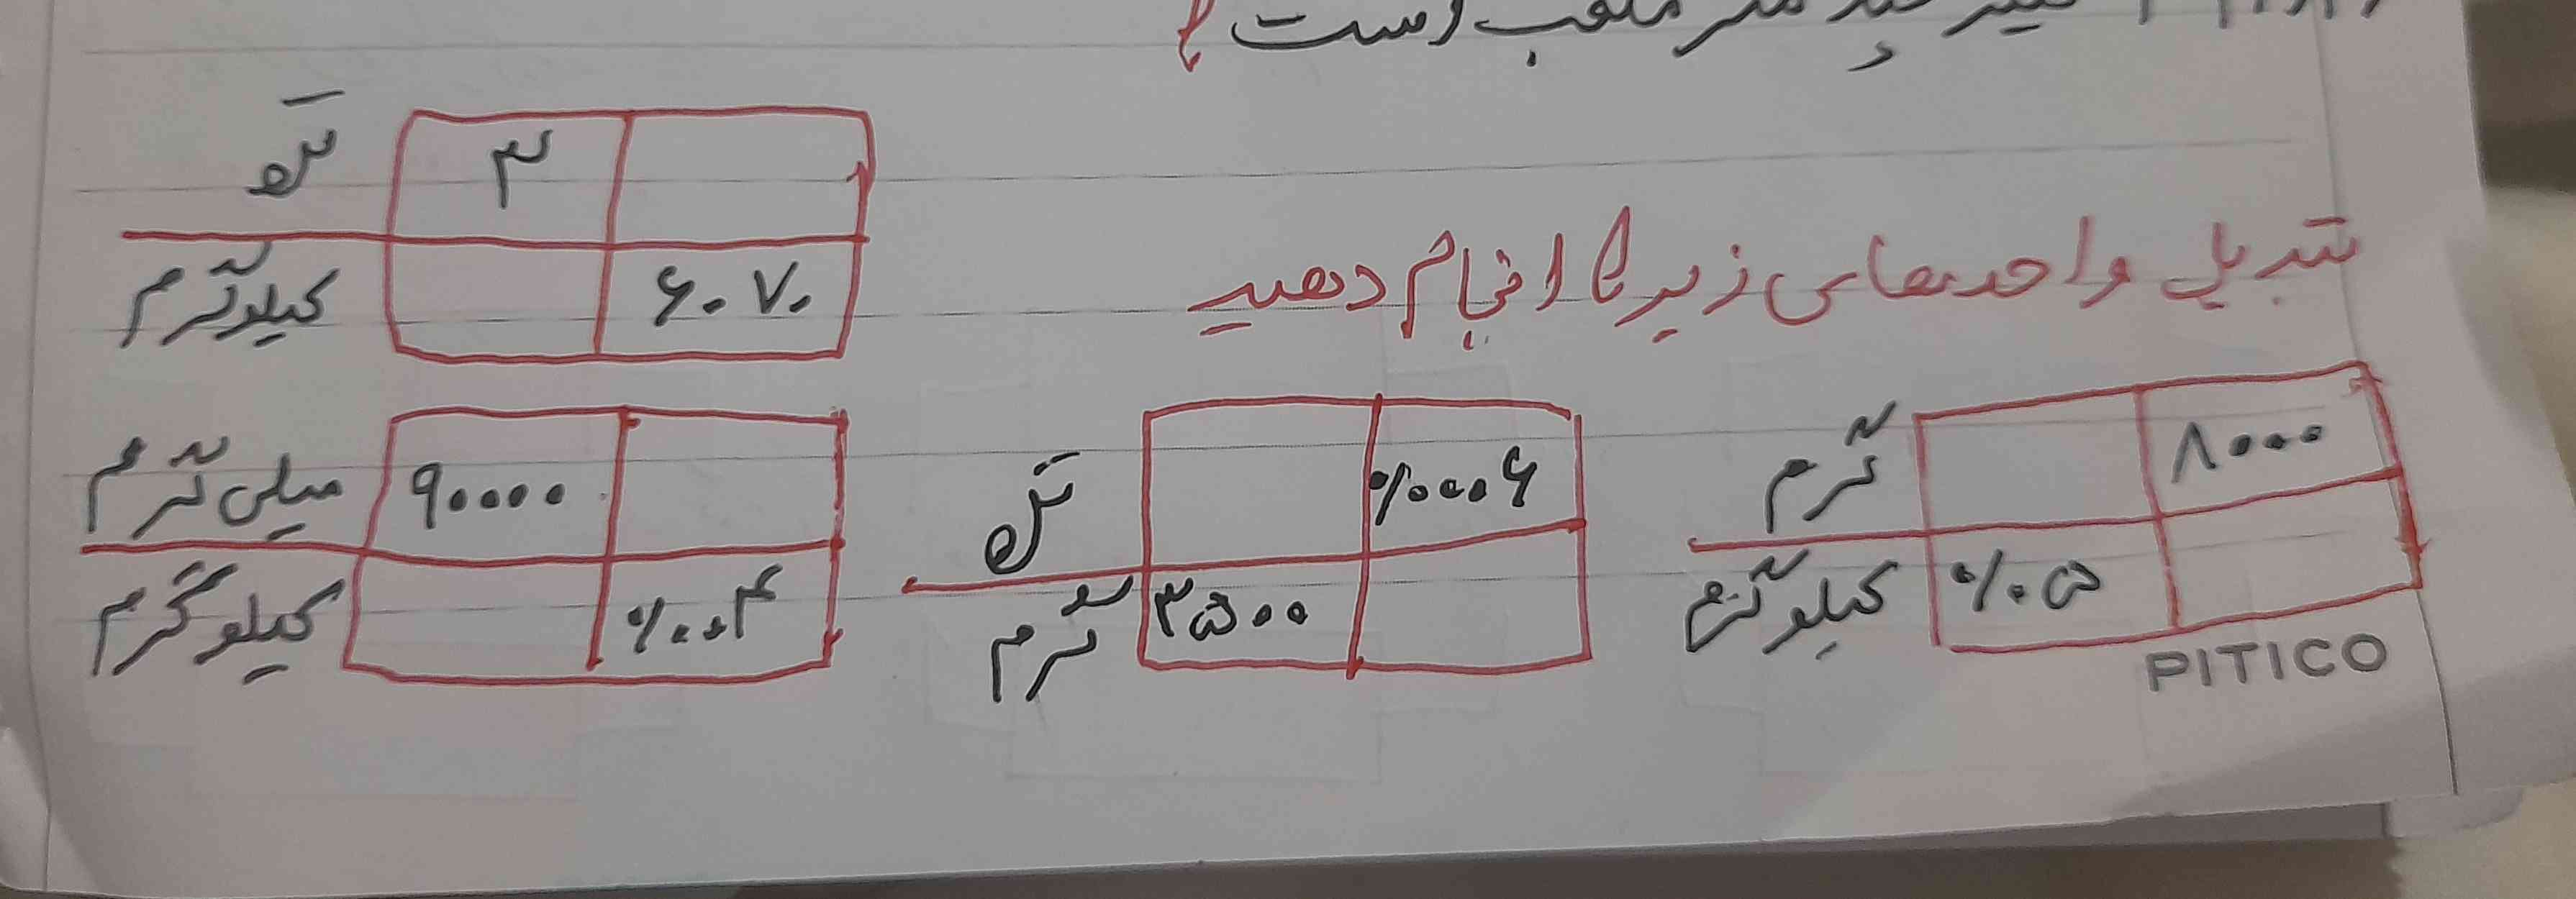 مکعب است؟
تبدیل واحدهای زیر را انجام دهید
تن ۳
کیلوگرم ۶۰۷۰
گرم ۸۰۰۰
کیلوگرم ۰/۰۵
تن ۰/۰۰۰۶
گرم ۳۵۰۰
میلی گرم ۹۰۰۰۰
کیلوگرم ۰/۰۰۴
PITICO